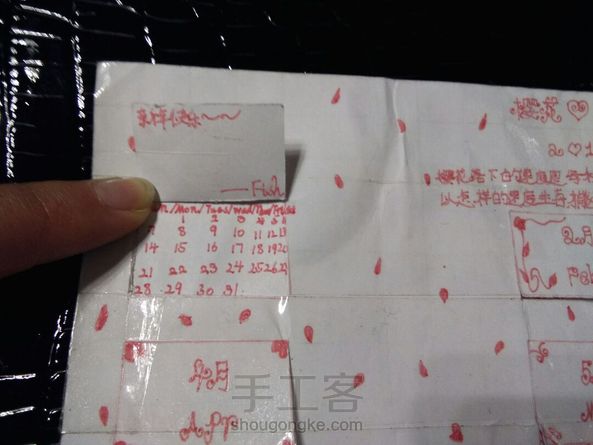 新年快乐～～
——Fish
/Mon/Tues/wed/
1 2 3 4 5 6
7 8 9 10 11 12 13
14 15 16 17 18 19 20
21 22 23 24 25 26 27
28 29 30 31
4月
Apr
樱花♡
2♡1
樱花落下的速度
以怎样的速度生存
2月
Feb
5
手工客
shougongke.com